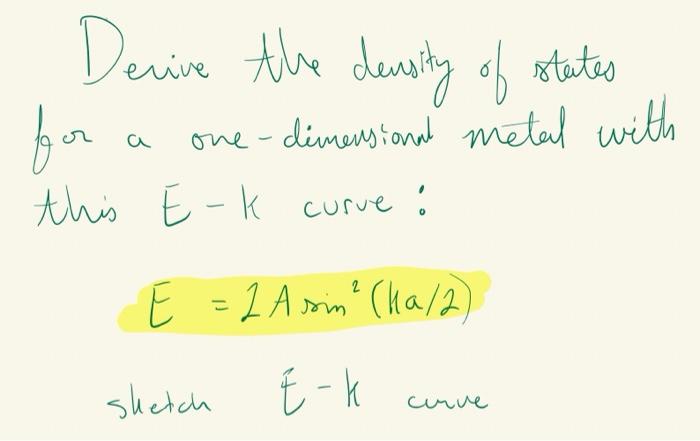 Derive the density of states
for a one-dimensional metal with
this E-k curve:
E = 2A sin²(ka/2)
sketch E-k curve